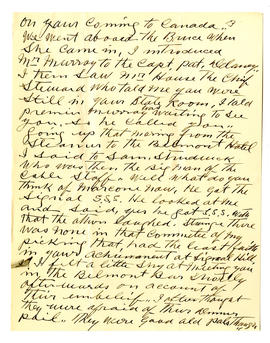 on yours coming to Canada.?
We went aboard the Bruce when
She came in, I introduced
Mr Murray to the Capt, pat, Delaney
I then Saw Mr House the Chief
Steward Who told me you were
Still in your State Room, I told
premier Murray Waiting to see
you. so he
Going up that morning from the
Steamer to the Belmont Hotel
I said to Sam.
Who were then the big man of the
Cable Staff. Well What do you
think of Marconi now, He got the
Signal S.S.S. He looked at me
and said, yes he got S.S.S. With
that the others laughed. Strange there
was none in that Committee of my
picking that, had the least faith
in your achievement at Signal Hill.
I felt a little Shy at meeting you
in the Belmont Bar Shortly
afterwards on account of
their unbelief. I often thought
they were afraid of their dinner
pail. They were Good old pals